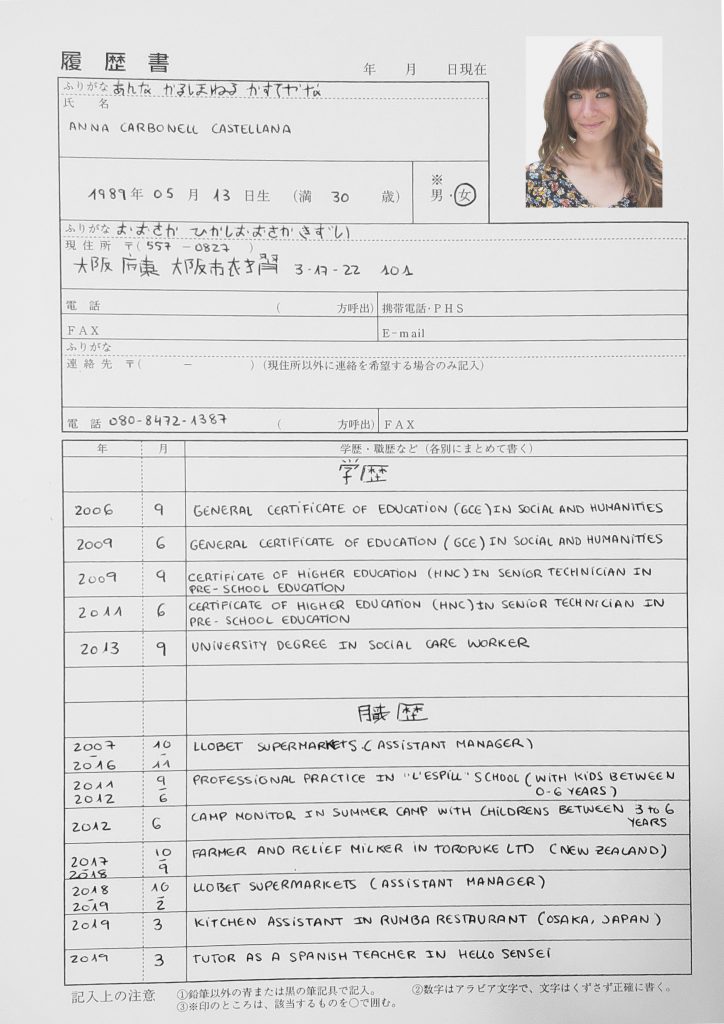 履歴書
年 月 日現在
ふりがな あんな かるしまねる かすてやな
氏 名
ANNA CARBONELL CASTELLANA
1989年 05 月 13 日生 (満 30 歳)
※
男・女
ふりがな おおさか ひかしおおさか きずい
現住所 〒(557 - 0827 )
大阪 府東 大阪市衣摺 3-17-22 101
電 話 ( 方呼出) 携帯電話・PHS
FAX E-mail
ふりがな
連絡先 〒( - ) (現住所以外に連絡を希望する場合のみ記入)
電 話 080-8472-1387 ( 方呼出) FAX
年 月 学歴・職歴など (各別にまとめて書く)
学歴
2006 9 GENERAL CERTIFICATE OF EDUCATION (GCE) IN SOCIAL AND HUMANITIES
2009 6 GENERAL CERTIFICATE OF EDUCATION (GCE) IN SOCIAL AND HUMANITIES
2009 9 CERTIFICATE OF HIGHER EDUCATION (HNC) IN SENIOR TECHNICIAN IN
PRE-SCHOOL EDUCATION
2011 6 CERTIFICATE OF HIGHER EDUCATION (HNC) IN SENIOR TECHNICIAN IN
PRE-SCHOOL EDUCATION
2013 9 UNIVERSITY DEGREE IN SOCIAL CARE WORKER
職歴
2007 - 2016 10 - 11 LLOBET SUPERMARKETS. (ASSISTANT MANAGER)
2011 - 2012 9 - 6 PROFESSIONAL PRACTICE IN "L'ESPILL" SCHOOL (WITH KIDS BETWEEN
0-6 YEARS)
2012 6 CAMP MONITOR IN SUMMER CAMP WITH CHILDRENS BETWEEN 3 to 6
YEARS
2017 - 2018 10 - 9 FARMER AND RELIEF MILKER IN TOROPUKE LTD (NEW ZEALAND)
2018 - 2019 10 - 2 LLOBET SUPERMARKETS (ASSISTANT MANAGER)
2019 3 KITCHEN ASSISTANT IN RUMBA RESTAURANT (OSAKA, JAPAN)
2019 3 TUTOR AS A SPANISH TEACHER IN HELLO SENSEI
記入上の注意 ①鉛筆以外の青または黒の筆記具で記入。 ②数字はアラビア文字で、文字はくずさず正確に書く。
③※印のところは、該当するものを○で囲む。